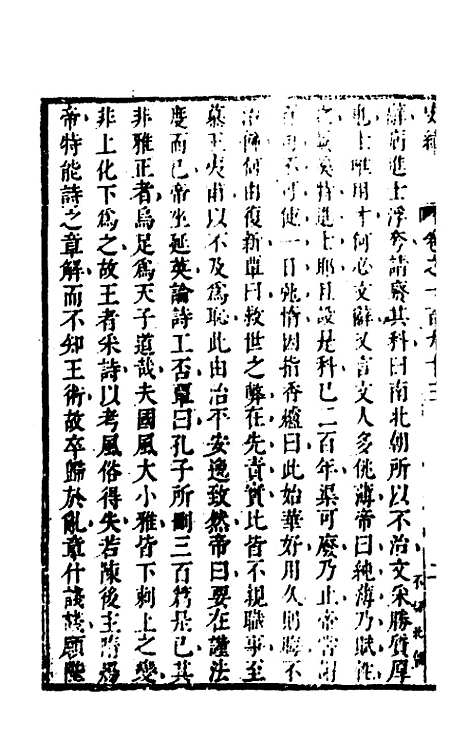 史緯　卷之一百九十三　二
辭病進士浮夸請廢其科曰南北朝所以不治文采勝質厚
也士惟用才何必文辭又言文人多佻薄帝曰純薄乃賦性
之異奚特進士耶且設是科已二百年渠可廢乃止帝嘗謂
百司不可使一日弛惰因指香爐曰此始華好用久則晦不
治飾何由復新覃曰救世之弊在先責實比皆不親職事至
慕王夷甫以不及為恥此由治平安逸致然帝曰要在謹法
度而已帝坐延英論詩工否覃曰孔子所刪三百篇是已其
非雅正者烏足為天子道哉夫國風大小雅皆下刺上之變
非上化下為之故王者采詩以考風俗得失若陳後主隋煬
帝特能詩之章解而不知王術故卒歸於亂章什諓諓願陛